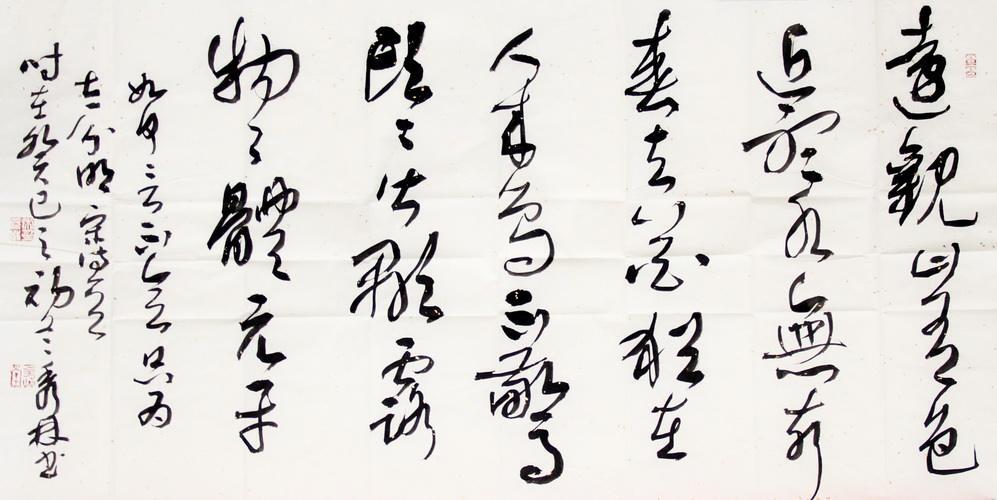 遠觀山有色
近聽水無聲
春去花猶在
人來鳥不驚
頭々皆顯露
物々體元平
如何言不會只為
太分明 宋詩
時在癸巳之初冬秀林書